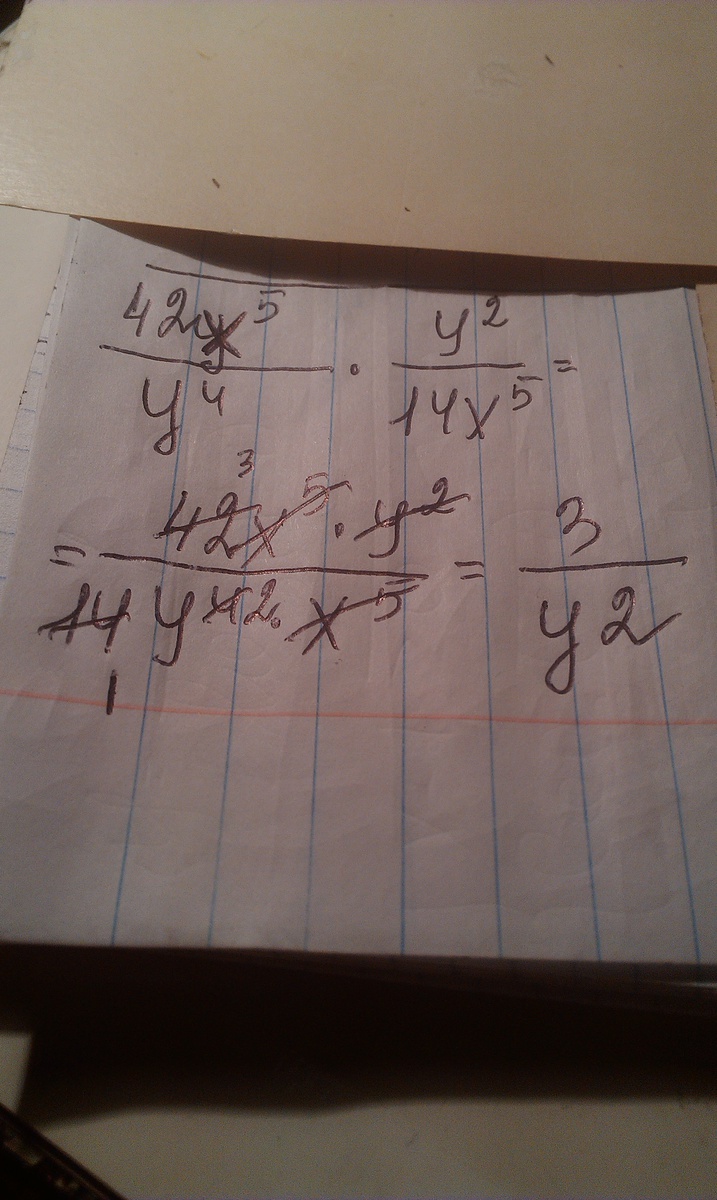 42x⁵/y⁴ · y²/14x⁵ =
= 42³x⁵ · y²/14₁y⁴² · x⁵ = 3/y²